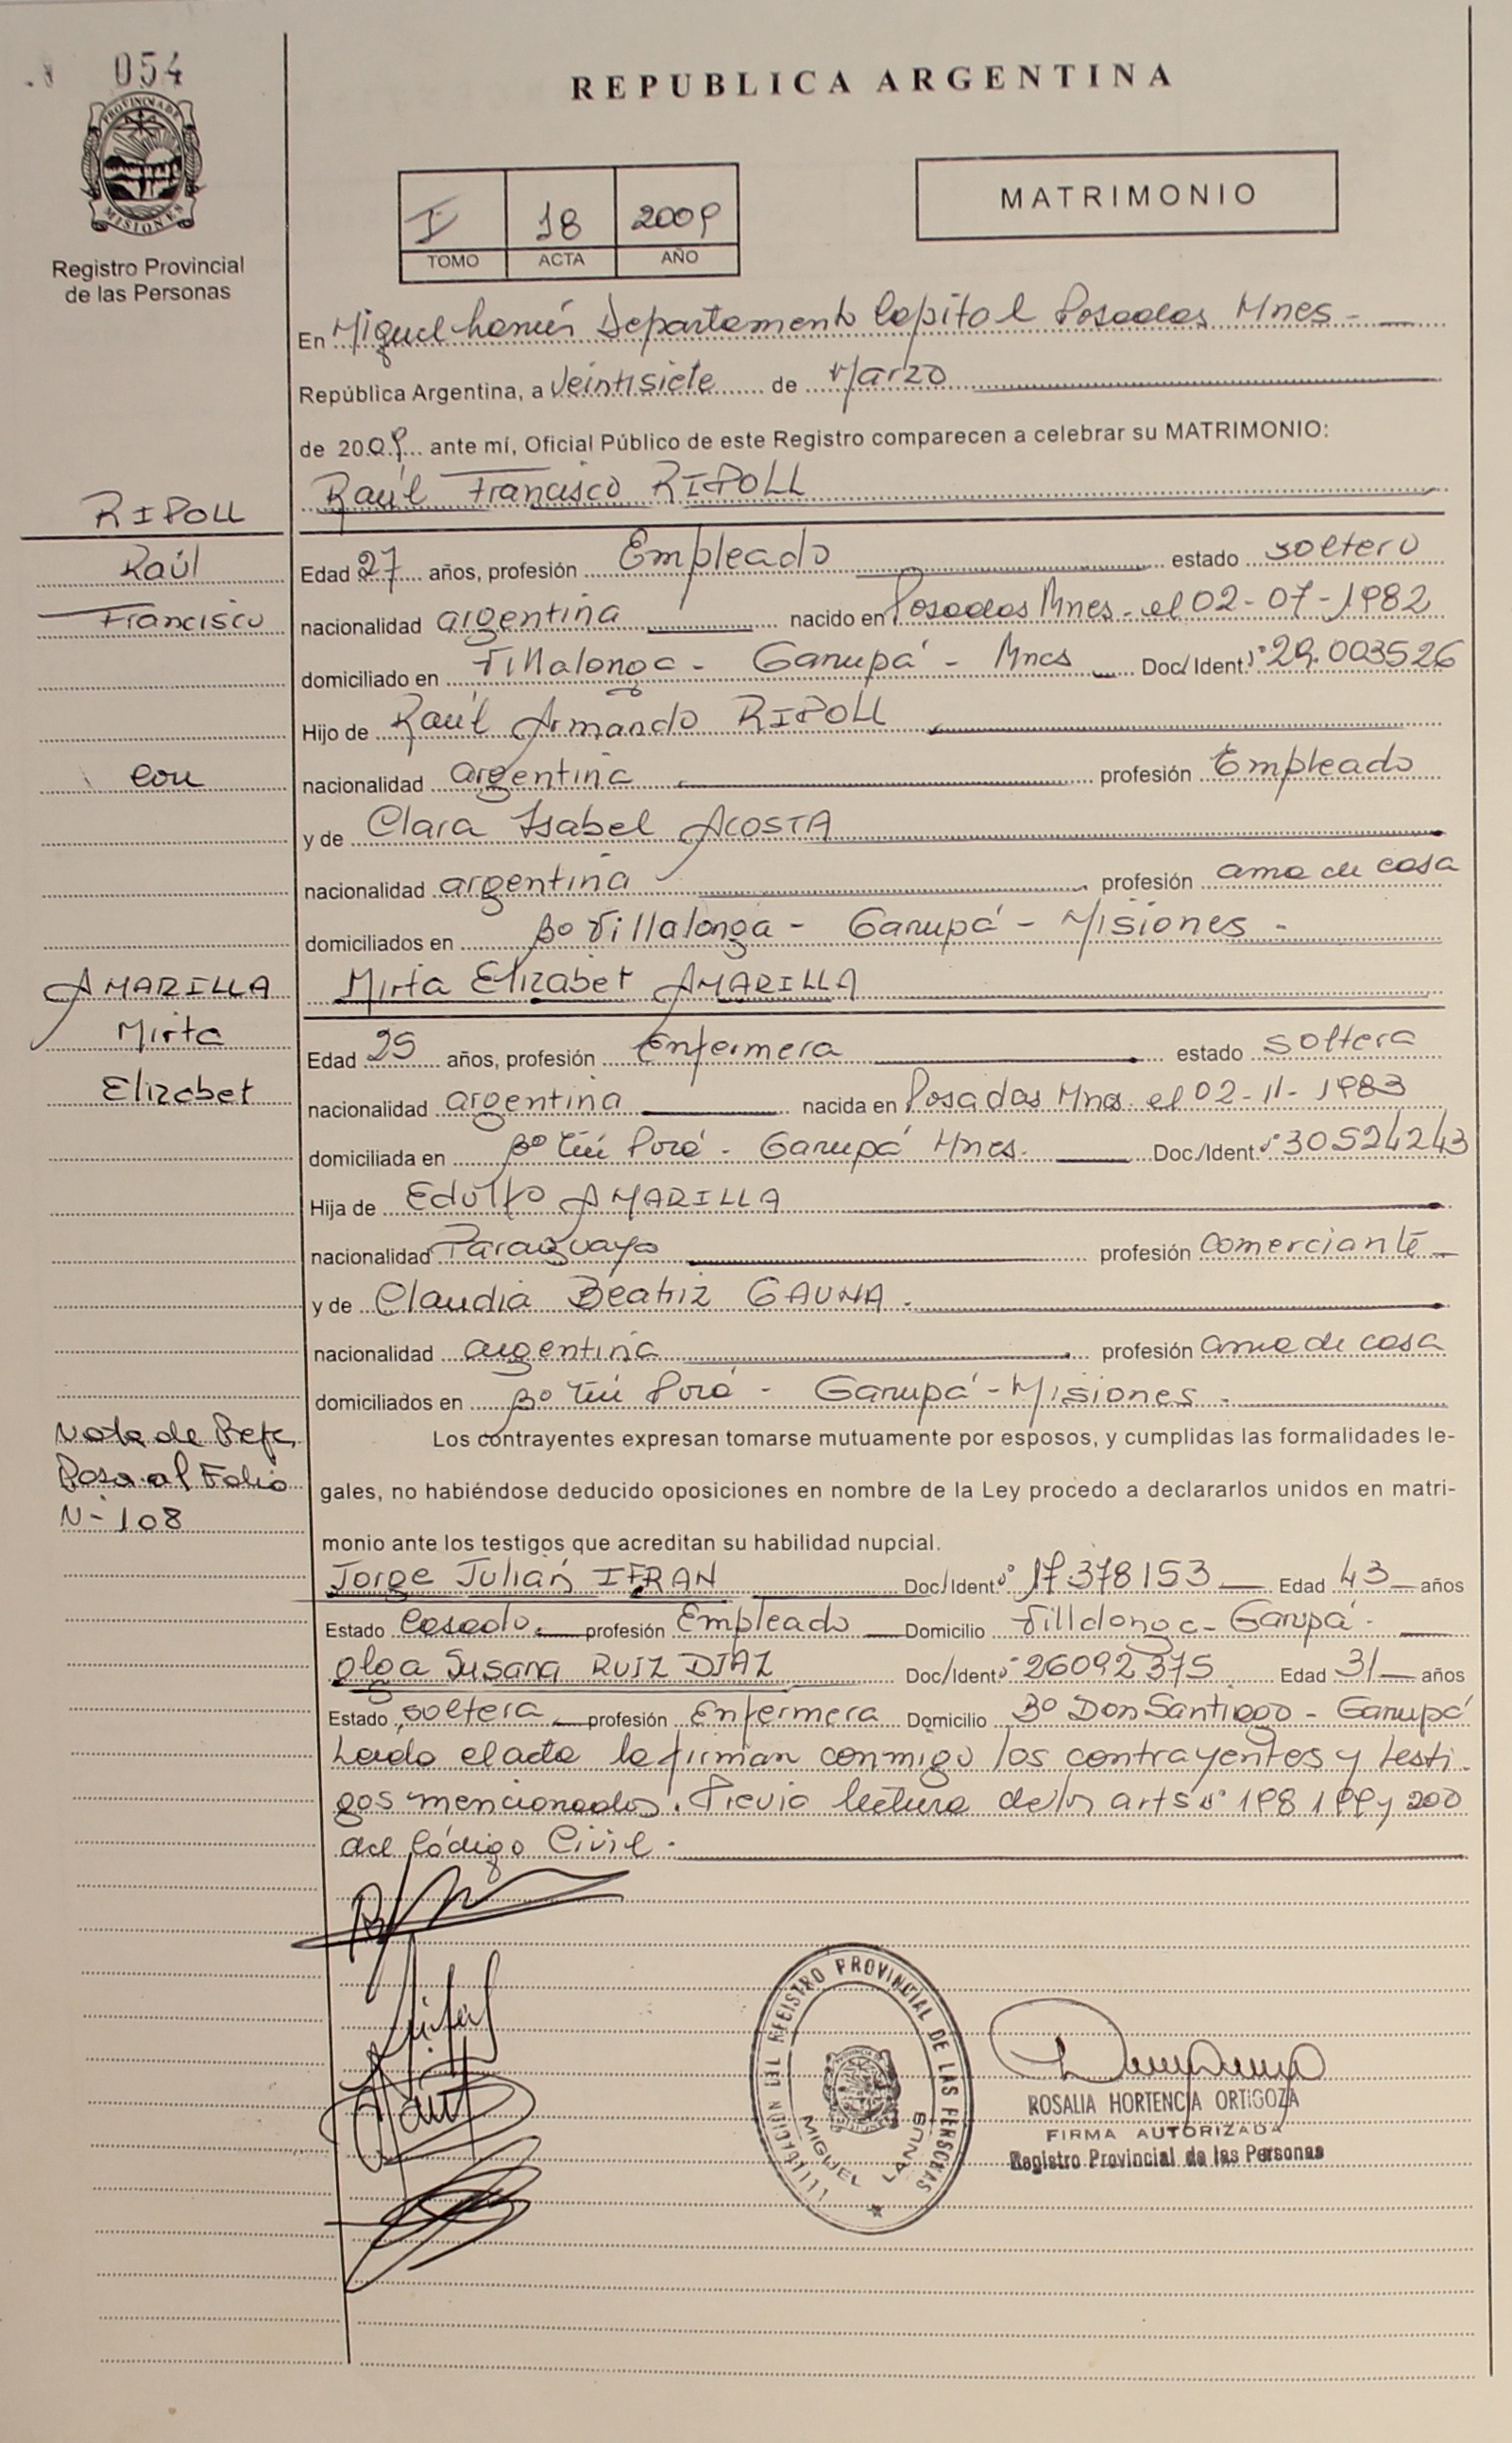 054
PROVINCIA DE
MISIONES
Registro Provincial
de las Personas
REPUBLICA ARGENTINA
I 18 2009
TOMO ACTA AÑO
MATRIMONIO
En Miguel Lanús Departamento Capital Posadas Mnes -
República Argentina, a Veintisiete de Marzo
de 2009 ante mí, Oficial Público de este Registro comparecen a celebrar su MATRIMONIO:
Raúl Francisco RIPOLL
RIPOLL
Raúl
Francisco
con
AMARILLA
Mirta
Elizabet
Edad 27 años, profesión Empleado estado soltero
nacionalidad argentina nacido en Posadas Mnes - el 02-07-1982
domiciliado en Villalonga - Garupá - Mnes Doc/Ident. Nº 29.003526
Hijo de Raúl Armando RIPOLL
nacionalidad argentina profesión Empleado
y de Clara Isabel ACOSTA
nacionalidad argentina profesión ama de casa
domiciliados en Bº Villalonga - Garupá - Misiones -
Mirta Elizabet AMARILLA
Edad 25 años, profesión Enfermera estado soltera
nacionalidad argentina nacida en Posadas Mnes. el 02-11-1983
domiciliada en Bº Ñú Porá - Garupá Mnes. Doc./Ident. Nº 30524243
Hija de Edulfo AMARILLA
nacionalidad Paraguaya profesión comerciante
y de Claudia Beatriz GAUNA.
nacionalidad argentina profesión ama de casa
domiciliados en Bº Ñú Porá - Garupá - Misiones -
Nota de Refe.
Pasa al Folio
N-108
Los contrayentes expresan tomarse mutuamente por esposos, y cumplidas las formalidades le-
gales, no habiéndose deducido oposiciones en nombre de la Ley procedo a declararlos unidos en matri-
monio ante los testigos que acreditan su habilidad nupcial.
Jorge Julián IFRAN Doc/Ident. Nº 17.378153 Edad 43 años
Estado Casado. profesión Empleado Domicilio Villalonga - Garupá -
Olga Susana RUIZ DIAZ Doc/Ident. Nº 26092375 Edad 31 años
Estado soltera profesión Enfermera Domicilio Bº Don Santiago - Garupá
Leída el acta la firman conmigo los contrayentes y testi-
gos mencionados. Previa lectura de los arts Nº 198 199 y 200
del Código Civil.
DELEGACION DEL REGISTRO PROVINCIAL DE LAS PERSONAS
MIGUEL LANUS
ROSALIA HORTENCIA ORTIGOZA
FIRMA AUTORIZADA
Registro Provincial de las Personas